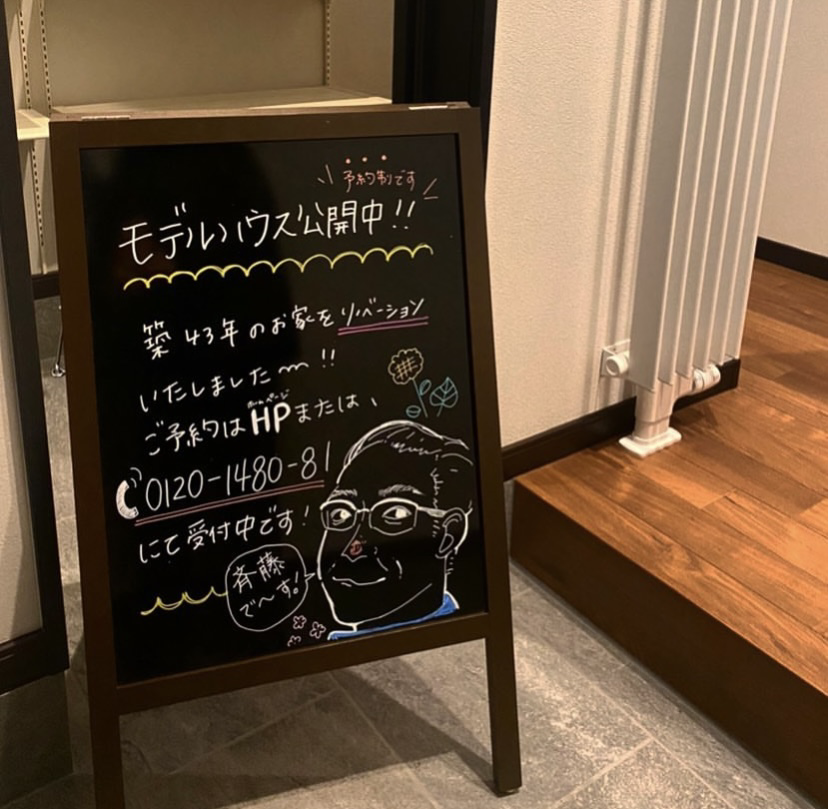 予約制です
モデルハウス公開中!!
築43年のお家をリノベーション
いたしました〜!!
ホームページ
ご予約はHPまたは、
0120-1480-81
にて受付中です!
斉藤
で〜す!